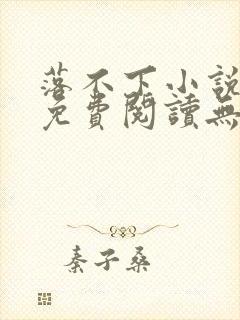 落不下小說
免費閱讀無
秦子桑